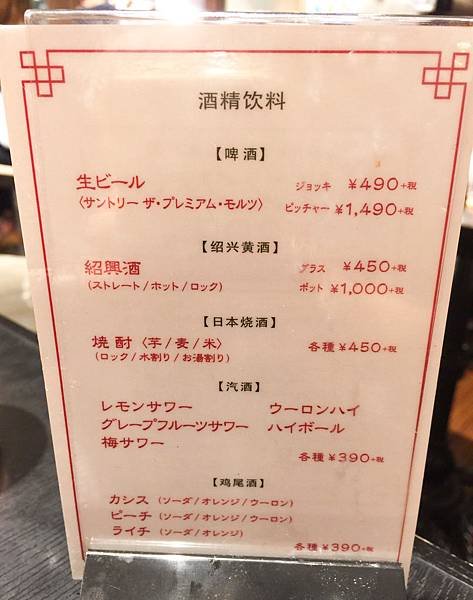 酒精饮料
【啤酒】
生ビール ジョッキ ¥490+税
〈サントリー ザ・プレミアム・モルツ〉 ピッチャー ¥1,490+税
【绍兴黄酒】
紹興酒 グラス ¥450+税
(ストレート/ホット/ロック) ポット ¥1,000+税
【日本烧酒】
焼酎〈芋/麦/米〉 各種 ¥450+税
(ロック/水割り/お湯割り)
【汽酒】
レモンサワー ウーロンハイ
グレープフルーツサワー ハイボール
梅サワー
各種 ¥390+税
【鸡尾酒】
カシス (ソーダ/オレンジ/ウーロン)
ピーチ (ソーダ/オレンジ/ウーロン)
ライチ (ソーダ/オレンジ)
各種 ¥390+税